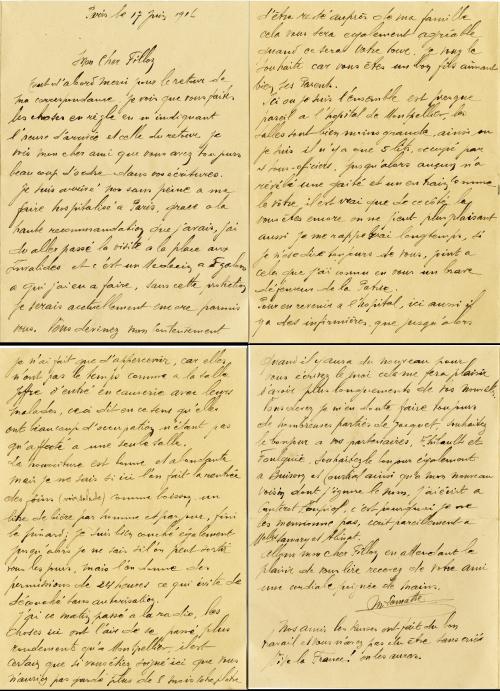 Paris le 17 Juin 1916
Mon Cher Filloz
Tout d'abord merci pour le retour de
ma correspondance. Je vois que vous faites
les choses en règle en m'indiquant
l'heure d'arrivée et celle du retour. Je
vois mon cher ami que vous avez toujours
beaucoup d'ordre dans vos écritures.
Je suis arrivé non sans peine a me
faire hospitalisé a Paris, grace a la
haute recommandation que j'avais, j'ai
du allez passé la visite a la place aux
Invalides et c'est un Médecin a 5 galons
a qui j'ai eu a faire, sans cette
je serais actuellement encore parmis
vous. Vous devinez mon contentement
d'être resté auprès de ma famille
cela vous sera également agréable
quand ce sera votre tour. Je vous le
souhaite car vous êtes un bon fils aimant
bien ses Parents.
Ici ou je suis l'ensemble est presque
pareil a l'hôpital de Montpellier, les
salles sont bien moins grande, ainsi ou
je suis il n'y a que 5 lits, occupé par
5 sous-officiers. Jusqu'alors aucun n'a
une gaité et un entrain comme
le votre, il est vrai que de ce côté la
vous êtes encore on ne peut plus plaisant
aussi je me rappelerai longtemps, si
je n'ose dire toujours de vous, joint a
cela que j'ai connu en vous un brave
défenseur de la Patrie.
Pour en revenir a l'hôpital, ici aussi il
y a des infirmières, que jusqu'alors
je n'ai fait que d'appercevoir, car elles
n'ont pas le temps comme a la salle
d'entré en causerie avec leurs
malades, ceci dit en ce sens qu'elles
ont beaucoup d'occupation n'étant pas
qu'affecté a une seule salle.
La nourriture est bonne et abondante
mais je ne sais si ici l'on fait la rentrée
des foins (voir salade) comme boisson un
litre de bière par homme et par jour, fini
le pinard; je suis bien couché également
jusqu'alors je ne sais si l'on peut sortir
tous les jours, mais l'on donne des
permissions de 24 heures ce qui évite de
découché sans autorisation.
J'ai ce matin passé a la radio, les
choses ici ont l'air de se passé plus
rondement qu'a Montpellier, il est
certain que si vous étiez soigné ici que vous
n'auriez pas gardé plus de 8 mois votre platre
Quand il y aura du nouveau pour
vous écrivez le moi cela me fera plaisir
d'avoir plus longuement de vos nouvelles.
Vous devez je n'en doute faire toujours
de nombreuses parties de Jacquet, souhaitez
le bonjour a vos partenaires, Thibault et
Foulquié. Souhaitez le bonjour également
a Buisson et ainsi qu'a mon nouveau
voisin dont j'ignore le nom. J'ai écrit a
c'est pourquoi je ne
les mentionne pas, tout pareillement a
et
Allons mon cher Filloz, en attendant le
plaisir de vous lire recevez de votre ami
une cordiale poignée de mains.
Nos amis les Russes ont fait du bon
travail et vous n'avez pas du être sans crier
Vive la France! on les auras.